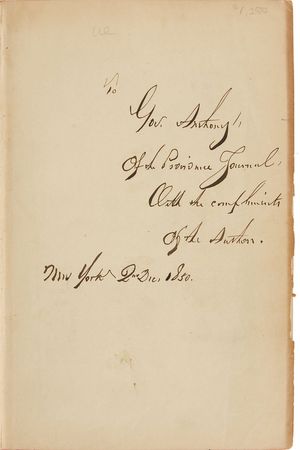 To
Gov. Anthony,
Of the Providence Journal,
With the compliments
of the Author.
New York 2nd Dec. 1850.